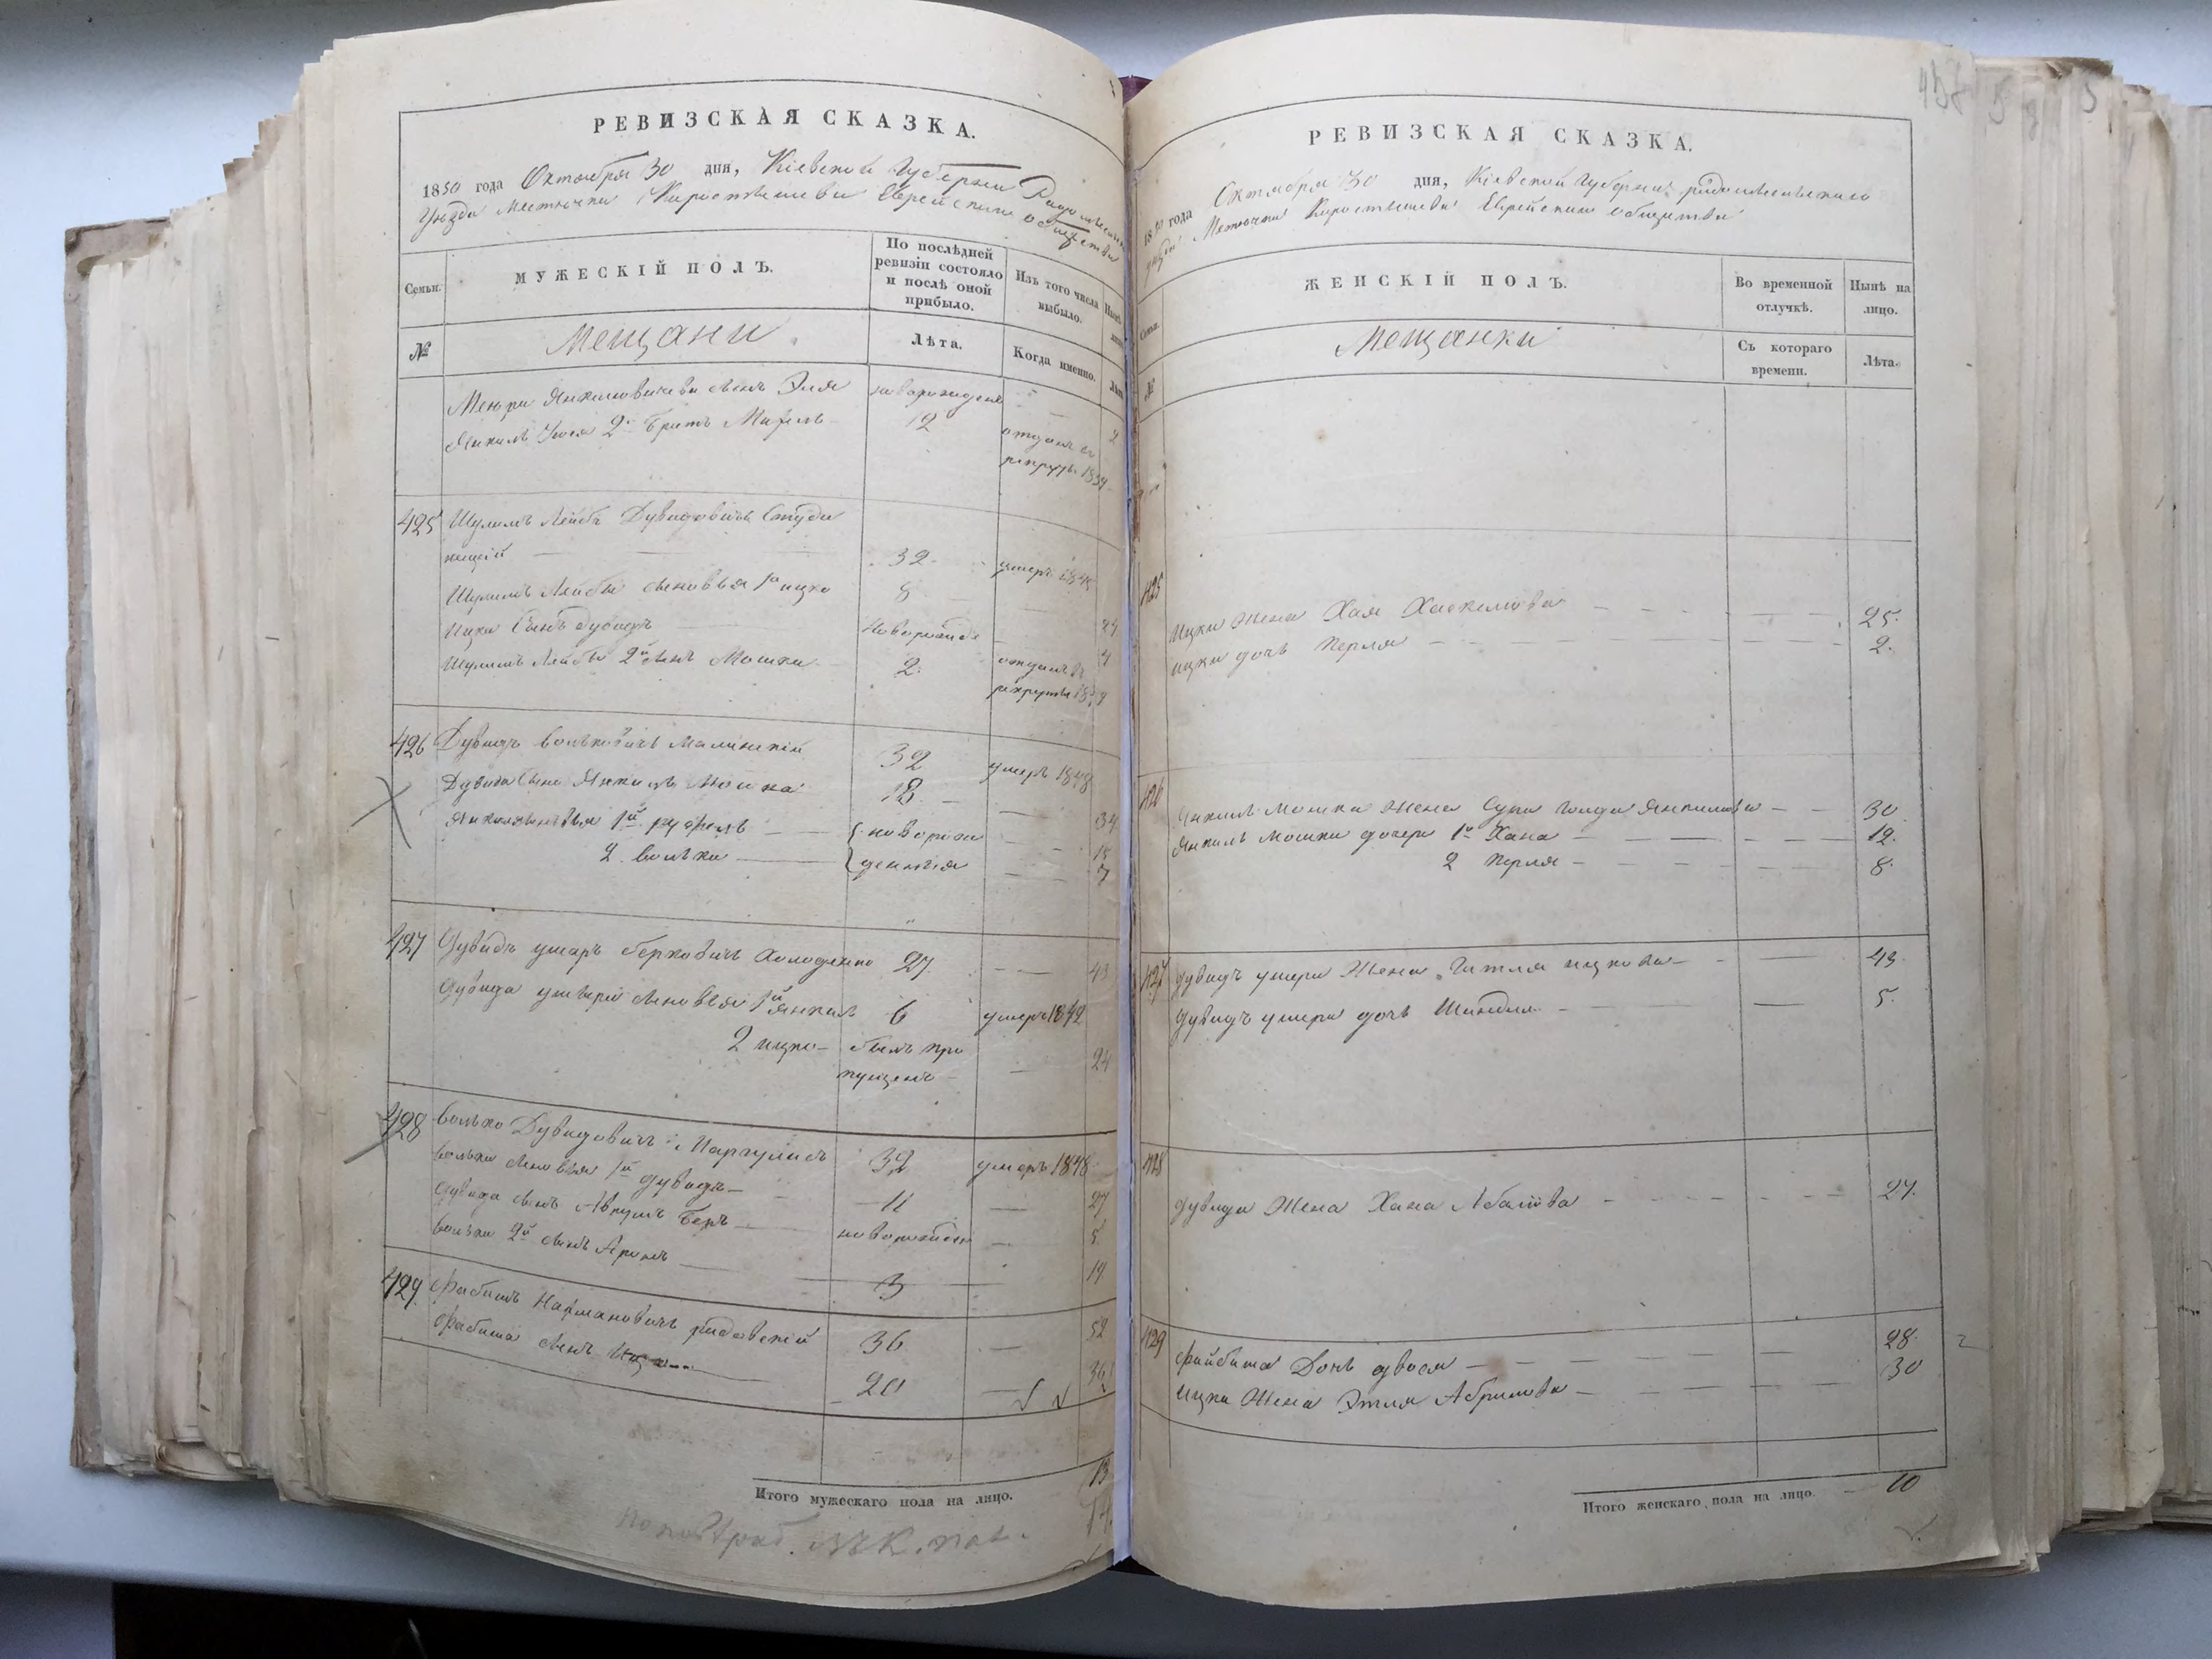 РЕВИЗСКАЯ СКАЗКА.
1850 года Октября 30 дня, Кіевской Губерніи Радомысльск
Уѣзда Мѣстечка Коростышева Еврейскаго общества
Семьи.
МУЖЕСКІЙ ПОЛЪ.
По послѣдней ревизіи состояло и послѣ оной прибыло.
Изъ того числа выбыло.
№
Мещани
Лѣта.
Когда именно.
сынъ Эля новорожден 2
2й братъ 12 отданъ въ
рекруты 1839
425 Шулимъ Лейба Дувидовичъ Студи
ницкій 32 умеръ
Шулимъ Лейбы сыновья 1й Ицко 8 24
Ицки сынъ Дувидъ новорожде 4
Шулимъ Лейбы 2й сынъ Мошко 2 отданъ въ
рекруты
426 Дувидъ Вольковичъ Малинскій 32 умеръ 1848
Дувида сынъ Янкель Мошко 18 34
1й новорож 15
2 Волько денныя 7
427 Дувидъ Умеръ Берковичъ Холоденко 27 43
Дувида Умера сыновья 1й Янкель 6 умеръ 1842
2 Ицко былъ про
пущенъ 24
428 Волько Дувидовичъ Маргулисъ 32 умеръ 1848
Волька сыновья 1й Дувидъ 11 27
Дувида сынъ Аврумъ Беръ новорожден 5
Волька 2й сынъ Аронъ 3 19
429 Фабишъ Нахмановичъ 36 52
Фабиша сынъ Ицко 20 36
Итого мужескаго пола на лицо. 13
РЕВИЗСКАЯ СКАЗКА.
1850 года Октября 30 дня, Кіевской Губерніи Радомысльскаго
уѣзда Мѣстечка Коростышева Еврейскаго общества
Семьи.
ЖЕНСКІЙ ПОЛЪ.
Во временной отлучкѣ.
Нынѣ на лицо.
№
Мещанки
Съ котораго времени.
Лѣта.
425
Ицки жена Хая Хаскелова 25.
Ицки дочь Перля 2.
426 Янкель Мошки жена Сура Голда Янкелова 30
Янкель Мошки дочери 1я Хана 12.
2 Перля 8
427 Дувидъ Умера жена Гитля Ицкова 43
Дувидъ Умера дочь Шиндля 5.
428
Дувида жена Хана 27.
429 Файбиша дочь Двося 28
Ицки жена Этля Абрамова 30
Итого женскаго пола на лицо. 10